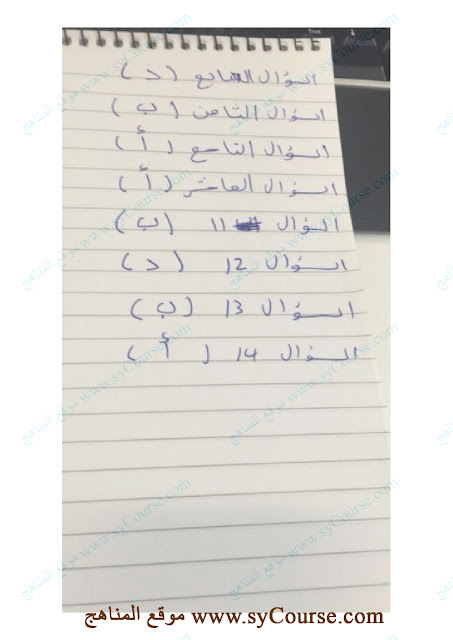 السؤال السابع (د)
السؤال الثامن (ب)
السؤال التاسع (أ)
السؤال العاشر (أ)
السؤال 11 (ب)
السؤال 12 (د)
السؤال 13 (ب)
السؤال 14 (أ)
موقع المناهج www.syCourse.com